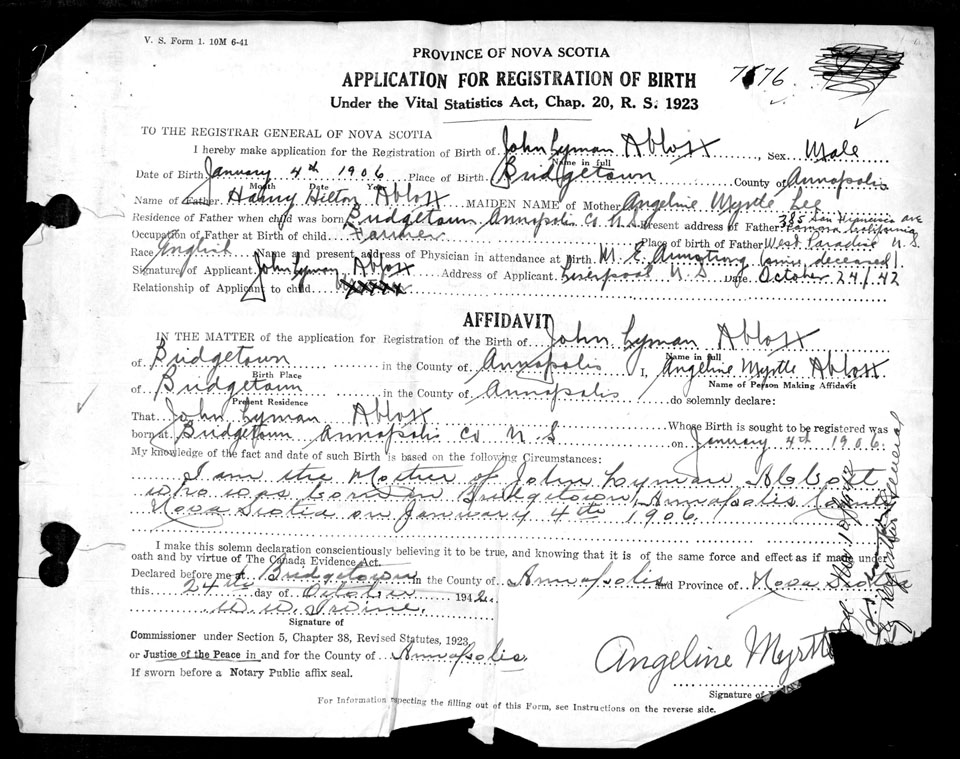 V. S. Form 1. 10M 6-41
PROVINCE OF NOVA SCOTIA
APPLICATION FOR REGISTRATION OF BIRTH
7176
Under the Vital Statistics Act, Chap. 20, R. S. 1923
TO THE REGISTRAR GENERAL OF NOVA SCOTIA
I hereby make application for the Registration of Birth of John Lyman Abbott, Sex Male
Name in full
Date of Birth January 4th 1906 Place of Birth Bridgetown County of Annapolis
Month Date Year
Name of Father Harry Hilton Abbott MAIDEN NAME of Mother Angeline Myrtle Lee
Residence of Father when child was born Bridgetown Annapolis Co N.S Present address of Father 385 San ave
California
Occupation of Father at Birth of child Farmer Place of birth of Father West Paradise N.S.
Race English Name and present address of Physician in attendance at Birth M. E. Armstrong (now deceased)
Signature of Applicant John Lyman Abbott Address of Applicant Liverpool N.S Date October 24/42
Relationship of Applicant to child
AFFIDAVIT
IN THE MATTER of the application for Registration of the Birth of John Lyman Abbott
Name in full
of Bridgetown in the County of Annapolis I, Angeline Myrtle Abbott
Birth Place Name of Person Making Affidavit
of Bridgetown in the County of Annapolis do solemnly declare:
Present Residence
That John Lyman Abbott Whose Birth is sought to be registered was
born at Bridgetown Annapolis Co N.S on January 4th 1906.
My knowledge of the fact and date of such Birth is based on the following Circumstances:
I am the Mother of John Lyman Abbott
who was born in Bridgetown, Annapolis County
Nova Scotia on January 4th 1906.
I make this solemn declaration conscientiously believing it to be true, and knowing that it is of the same force and effect as if made under
oath and by virtue of The Canada Evidence Act.
Declared before me at Bridgetown in the County of Annapolis and Province of Nova Scotia
this 24th day of October 1942.
Signature of
Commissioner under Section 5, Chapter 38, Revised Statutes, 1923
or Justice of the Peace in and for the County of Annapolis.
If sworn before a Notary Public affix seal.
Angeline Myrtle
Signature of
For Information respecting the filling out of this Form, see Instructions on the reverse side.